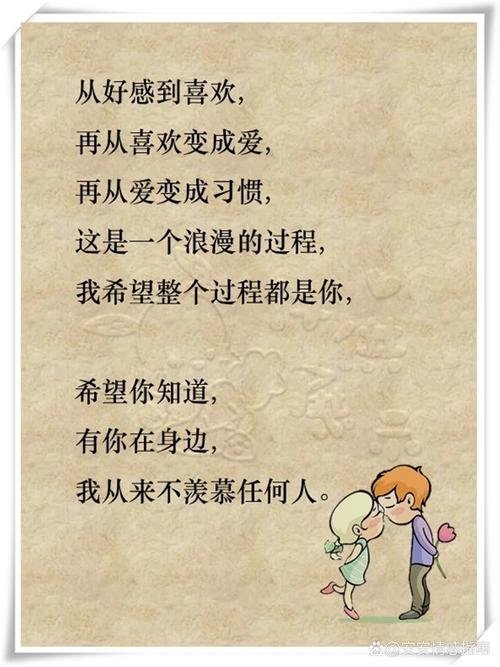 从好感到喜欢，
再从喜欢变成爱，
再从爱变成习惯，
这是一个浪漫的过程，
我希望整个过程都是你，
希望你知道，
有你在身边，
我从来不羡慕任何人。
安安情感指南